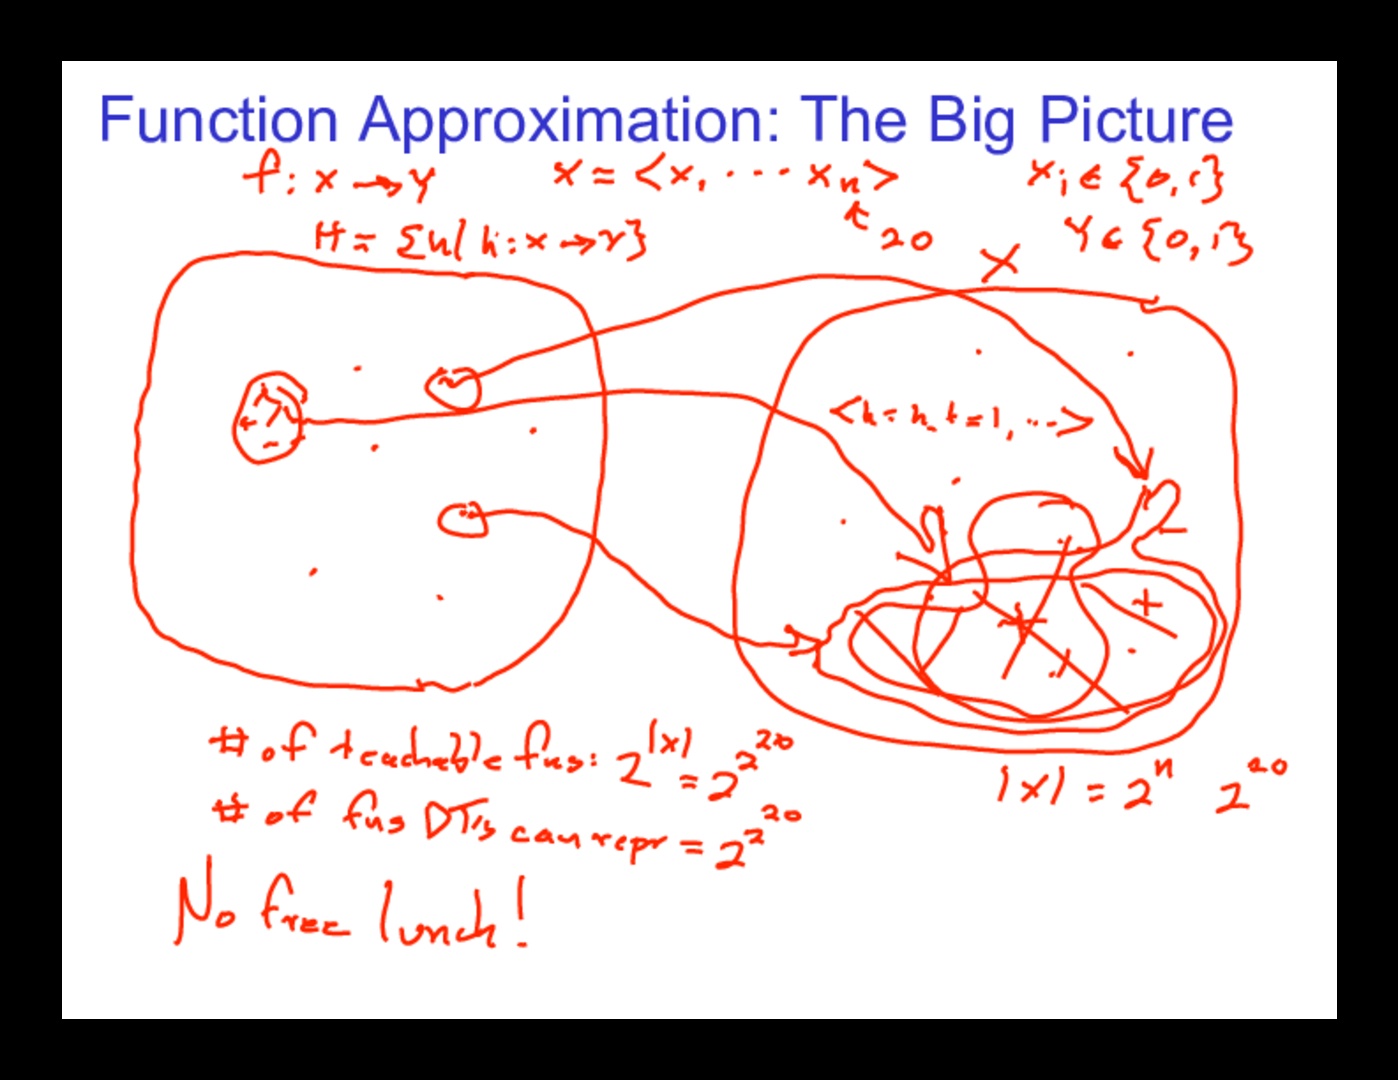 Function Approximation: The Big Picture
f: x → Y    x = <x, ··· xn>    xi ∈ {0,1}
H = {h | h: x → Y}    20    Y ∈ {0,1}
X
# of teachable fns: 2^|x| = 2^2^20
|x| = 2^n    2^20
# of fns DT's can repr = 2^2^20
No free lunch!